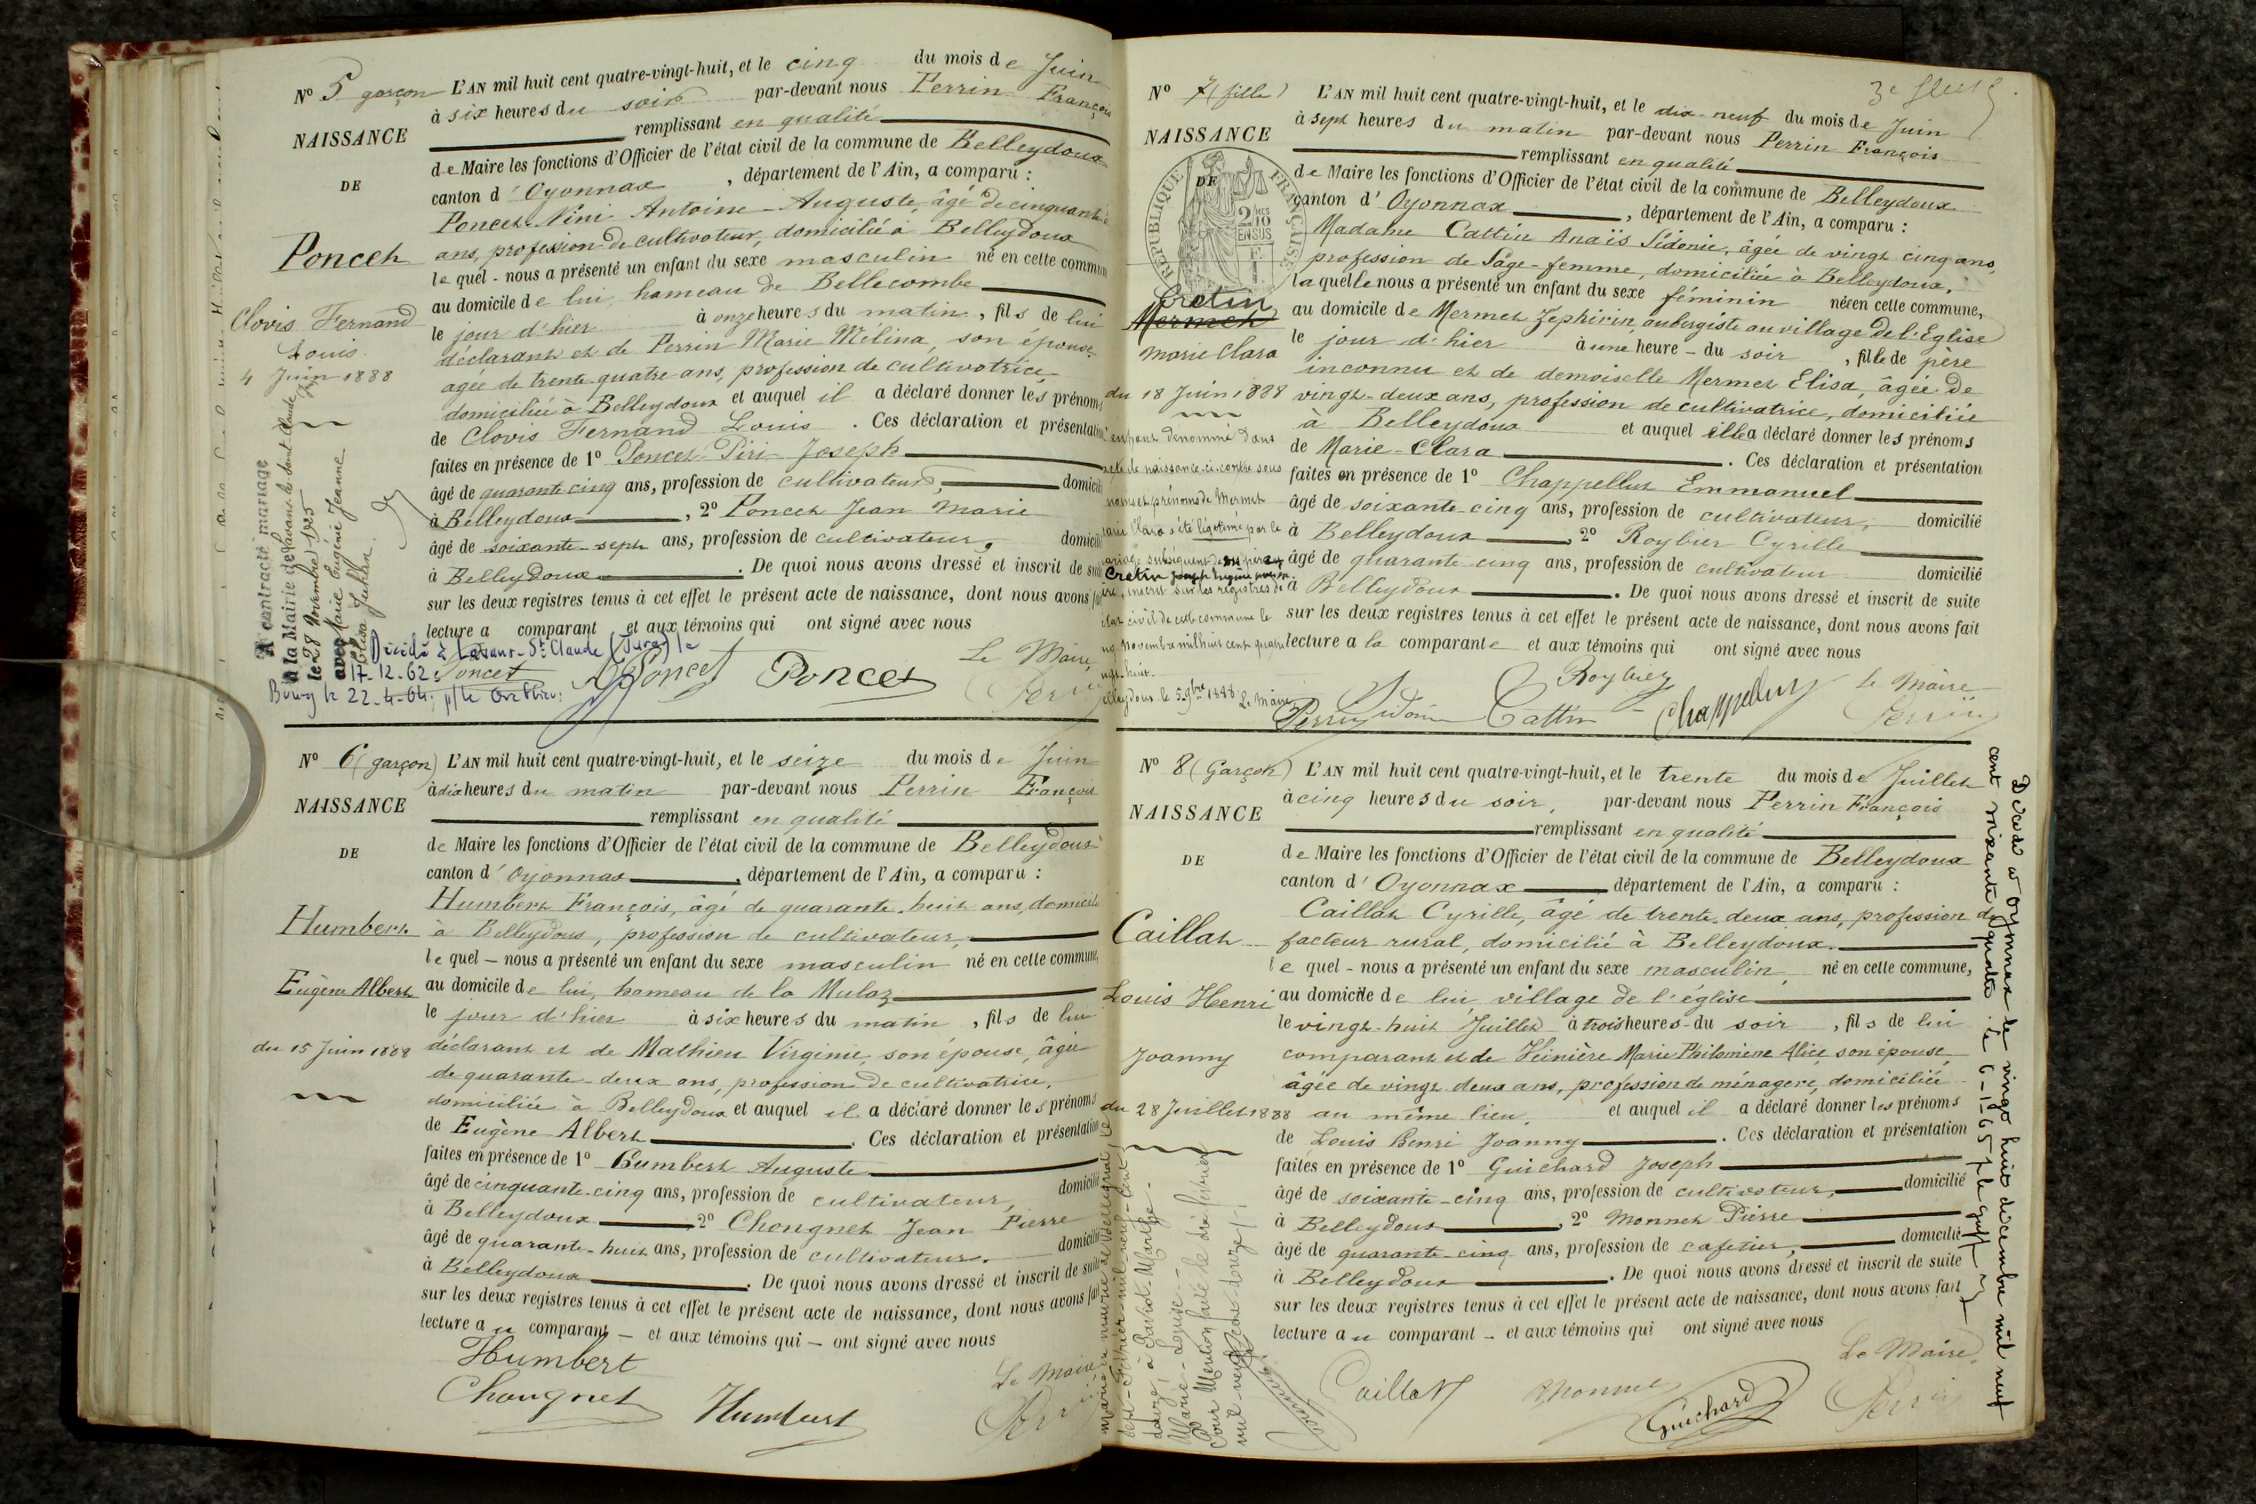 N° 5 garçon
NAISSANCE
DE
Poncet
Clovis Fernand
Louis
4 Juin 1888
A contracté mariage
à la Mairie de Lavans-les-Saint-Claude
le 28 Novembre 1925
avec Marie Eugénie Jeanne
L'AN mil huit cent quatre-vingt-huit, et le cinq du mois de Juin
à six heures du soir par-devant nous Perrin François
remplissant en qualité
de Maire les fonctions d'Officier de l'état civil de la commune de Belleydoux
canton d'Oyonnax, département de l'Ain, a comparu :
Poncet-Nini Antoine-Auguste, âgé de cinquante
ans, profession de cultivateur, domicilié à Belleydoux
lequel - nous a présenté un enfant du sexe masculin né en cette commun
au domicile de lui, hameau de Bellecombe
le jour d'hier à onze heures du matin, fils de lui
déclarant et de Perrin Marie Mélina, son épouse
agée de trente quatre ans, profession de cultivatrice
domiciliée à Belleydoux et auquel il a déclaré donner les prénoms
de Clovis Fernand Louis. Ces déclaration et présentation
faites en présence de 1° Poncet-Piri-Joseph
âgé de quarante cinq ans, profession de cultivateur, domicili
à Belleydoux, 2° Poncet Jean Marie
âgé de soixante-sept ans, profession de cultivateur, domicili
à Belleydoux. De quoi nous avons dressé et inscrit de suite
sur les deux registres tenus à cet effet le présent acte de naissance, dont nous avons fait
lecture a comparant et aux témoins qui ont signé avec nous
Décédé à Lavans-St Claude (Jura) le
17.12.62.
Poncet Poncet Poncet
Le Maire
Perrin
N° 6 (garçon)
NAISSANCE
DE
Humbert
Eugène Albert
du 15 Juin 1888
L'AN mil huit cent quatre-vingt-huit, et le seize du mois de Juin
à dix heures du matin par-devant nous Perrin François
remplissant en qualité
de Maire les fonctions d'Officier de l'état civil de la commune de Belleydoux
canton d'Oyonnax, département de l'Ain, a comparu :
Humbert François, âgé de quarante-huit ans, domicilié
à Belleydoux, profession de cultivateur,
lequel - nous a présenté un enfant du sexe masculin né en cette commune,
au domicile de lui, hameau de la Mulaz
le jour d'hier à six heures du matin, fils de lui
déclarant et de Mathieu Virginie, son épouse, âgée
de quarante-deux ans, profession de cultivatrice,
domiciliée à Belleydoux et auquel il a déclaré donner les prénoms
de Eugène Albert. Ces déclaration et présentation
faites en présence de 1° Humbert Auguste
âgé de cinquante-cinq ans, profession de cultivateur, domicilié
à Belleydoux 2° Chougnet Jean Pierre
âgé de quarante-huit ans, profession de cultivateur. domicilié
à Belleydoux. De quoi nous avons dressé et inscrit de suite
sur les deux registres tenus à cet effet le présent acte de naissance, dont nous avons fait
lecture au comparant - et aux témoins qui - ont signé avec nous
Humbert
Chougnet Humbert
Le Maire
Perrin
3e feuillet
N° 7 (fille)
NAISSANCE
DE
RÉPUBLIQUE FRANÇAISE
2/10 EN SUS
Cretin
Mermet
Marie Clara
du 18 Juin 1888
L'AN mil huit cent quatre-vingt-huit, et le dix-neuf du mois de Juin
à sept heures du matin par-devant nous Perrin François
remplissant en qualité
de Maire les fonctions d'Officier de l'état civil de la commune de Belleydoux
canton d'Oyonnax, département de l'Ain, a comparu :
Madame Cattin Anaïs Sidonie, âgée de vingt cinq ans,
profession de Sage-femme, domiciliée à Belleydoux,
laquelle nous a présenté un enfant du sexe féminin née en cette commune,
au domicile de Mermet Zephirin, aubergiste au village de l'Eglise
le jour d'hier à une heure - du soir, fille de père
inconnu et de demoiselle Mermet Elisa, âgée de
vingt-deux ans, profession de cultivatrice, domiciliée
à Belleydoux et auquel elle a déclaré donner les prénoms
de Marie-Clara. Ces déclaration et présentation
faites en présence de 1° Chappelluz Emmanuel
âgé de soixante-cinq ans, profession de cultivateur, domicilié
à Belleydoux, 2° Roybier Cyrille
âgé de quarante-cinq ans, profession de cultivateur domicilié
à Belleydoux. De quoi nous avons dressé et inscrit de suite
sur les deux registres tenus à cet effet le présent acte de naissance, dont nous avons fait
lecture a la comparante et aux témoins qui ont signé avec nous
enfant dénommé dans
acte de naissance ci-contre sous
nom et prénoms de Mermet
Marie Clara a été légitimé par le
mariage subséquent de
Cretin Joseph
inscrit sur les registres de
état civil de cette commune le
Novembre mil huit cent quatre
vingt-huit.
Belleydoux le 5 9bre 1888 Le Maire
Perrin
Cattin
Roybier
Chappelluz
Le Maire
Perrin
N° 8 (Garçon)
NAISSANCE
DE
Caillat
Louis Henri
Joanny
du 28 Juillet 1888
L'AN mil huit cent quatre-vingt-huit, et le trente du mois de Juillet
à cinq heures du soir, par-devant nous Perrin François
remplissant en qualité
de Maire les fonctions d'Officier de l'état civil de la commune de Belleydoux
canton d'Oyonnax département de l'Ain, a comparu :
Caillat Cyrille, âgé de trente-deux ans, profession de
facteur rural, domicilié à Belleydoux.
lequel - nous a présenté un enfant du sexe masculin né en cette commune,
au domicile de lui village de l'église
le vingt-huit Juillet à trois heures - du soir, fils de lui
comparant et de Marie Philomène Alice, son épouse
âgée de vingt-deux ans, profession de ménagère, domiciliée
au même lieu, et auquel il a déclaré donner les prénoms
de Louis Henri Joanny. Ces déclaration et présentation
faites en présence de 1° Guichard Joseph
âgé de soixante-cinq ans, profession de cultivateur, domicilié
à Belleydoux, 2° Monnet Pierre
âgé de quarante-cinq ans, profession de cafetier, domicilié
à Belleydoux. De quoi nous avons dressé et inscrit de suite
sur les deux registres tenus à cet effet le présent acte de naissance, dont nous avons fait
lecture au comparant - et aux témoins qui ont signé avec nous
Caillat
Monnet
Guichard
Le Maire,
Perrin
Marié en mairie de
sept Février mil neuf cent
douze, à
Marie-Louise-
Pour Mention faite le dix février
mil-neuf-cent-douze
Décédé à Oyonnax le vingt huit décembre mil neuf
cent soixante quatre. le 6-1-65